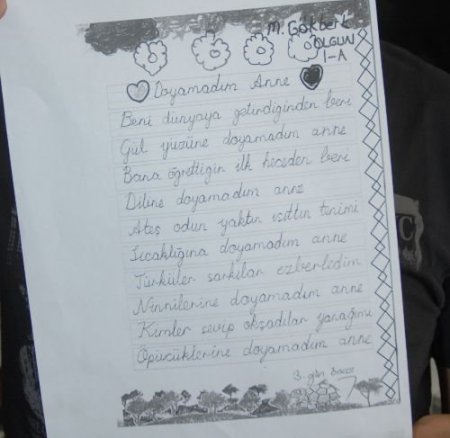 M. Gökbert
OLGUN
1-A
Doyamadım Anne
Beni dünyaya getirdiğinden beri
Gül yüzüne doyamadım anne
Bana öğrettiğin ilk heceden beri
Diline doyamadım anne
Ateş odun yaktın ısıttın tenimi
Sıcaklığına doyamadım anne
Türküler şarkılar ezberledim
Ninnilerine doyamadım anne
Kimler sevip okşadılar yanağımı
Öpücüklerine doyamadım anne
3. gün